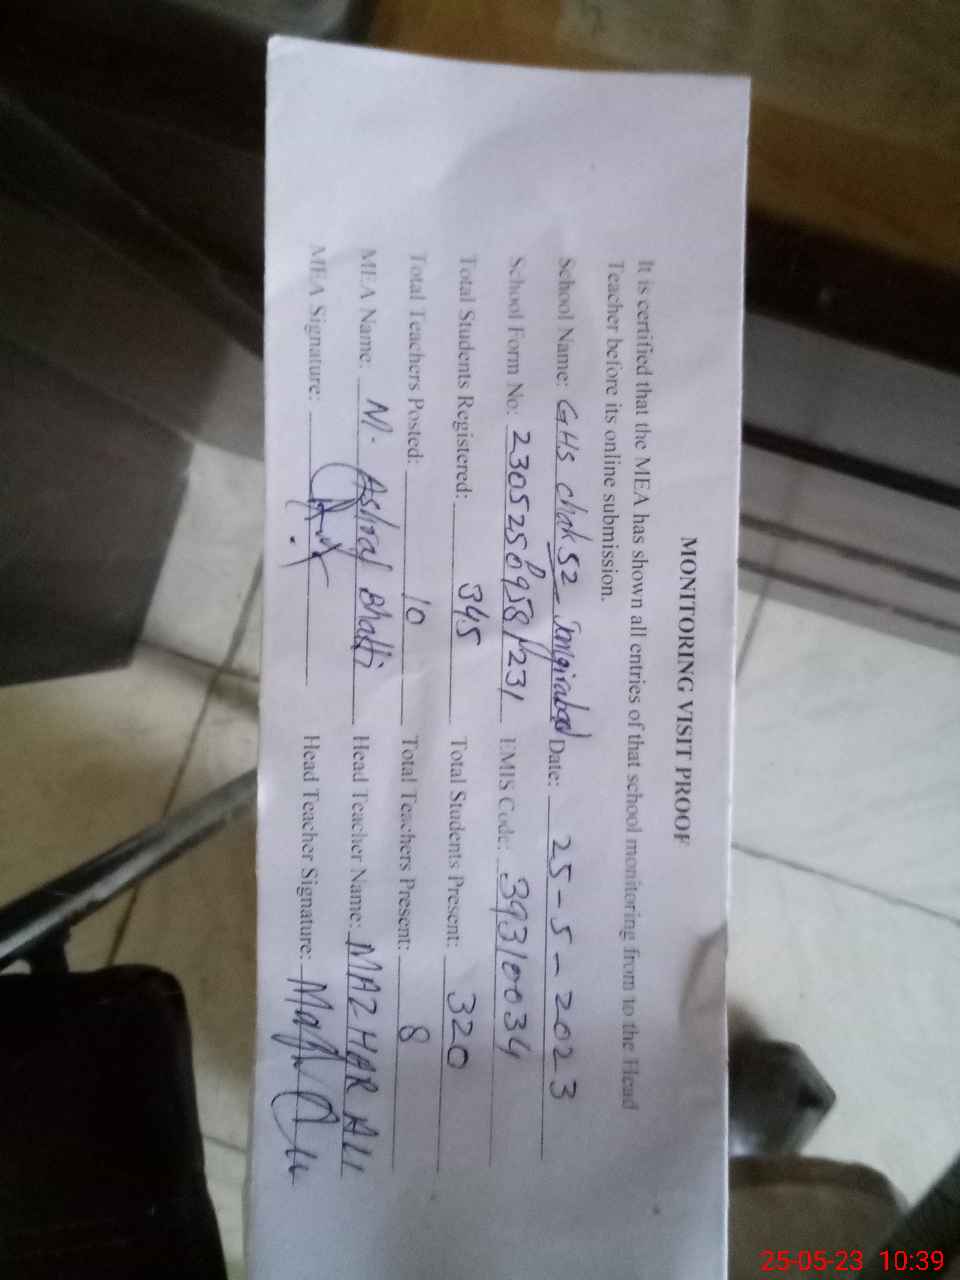 MONITORING VISIT PROOF
It is certified that the MEA has shown all entries of that school monitoring from to the Head
Teacher before its online submission.
School Name: GHS chak 52 Date: 25-5-2023
School Form No: EMIS Code: 39310034
Total Students Registered: 345 Total Students Present: 320
Total Teachers Posted: 10 Total Teachers Present: 8
MEA Name: M. Ashraf Bhatti Head Teacher Name: MAZHAR ALI
MEA Signature: Head Teacher Signature:
25-05-23 10:39